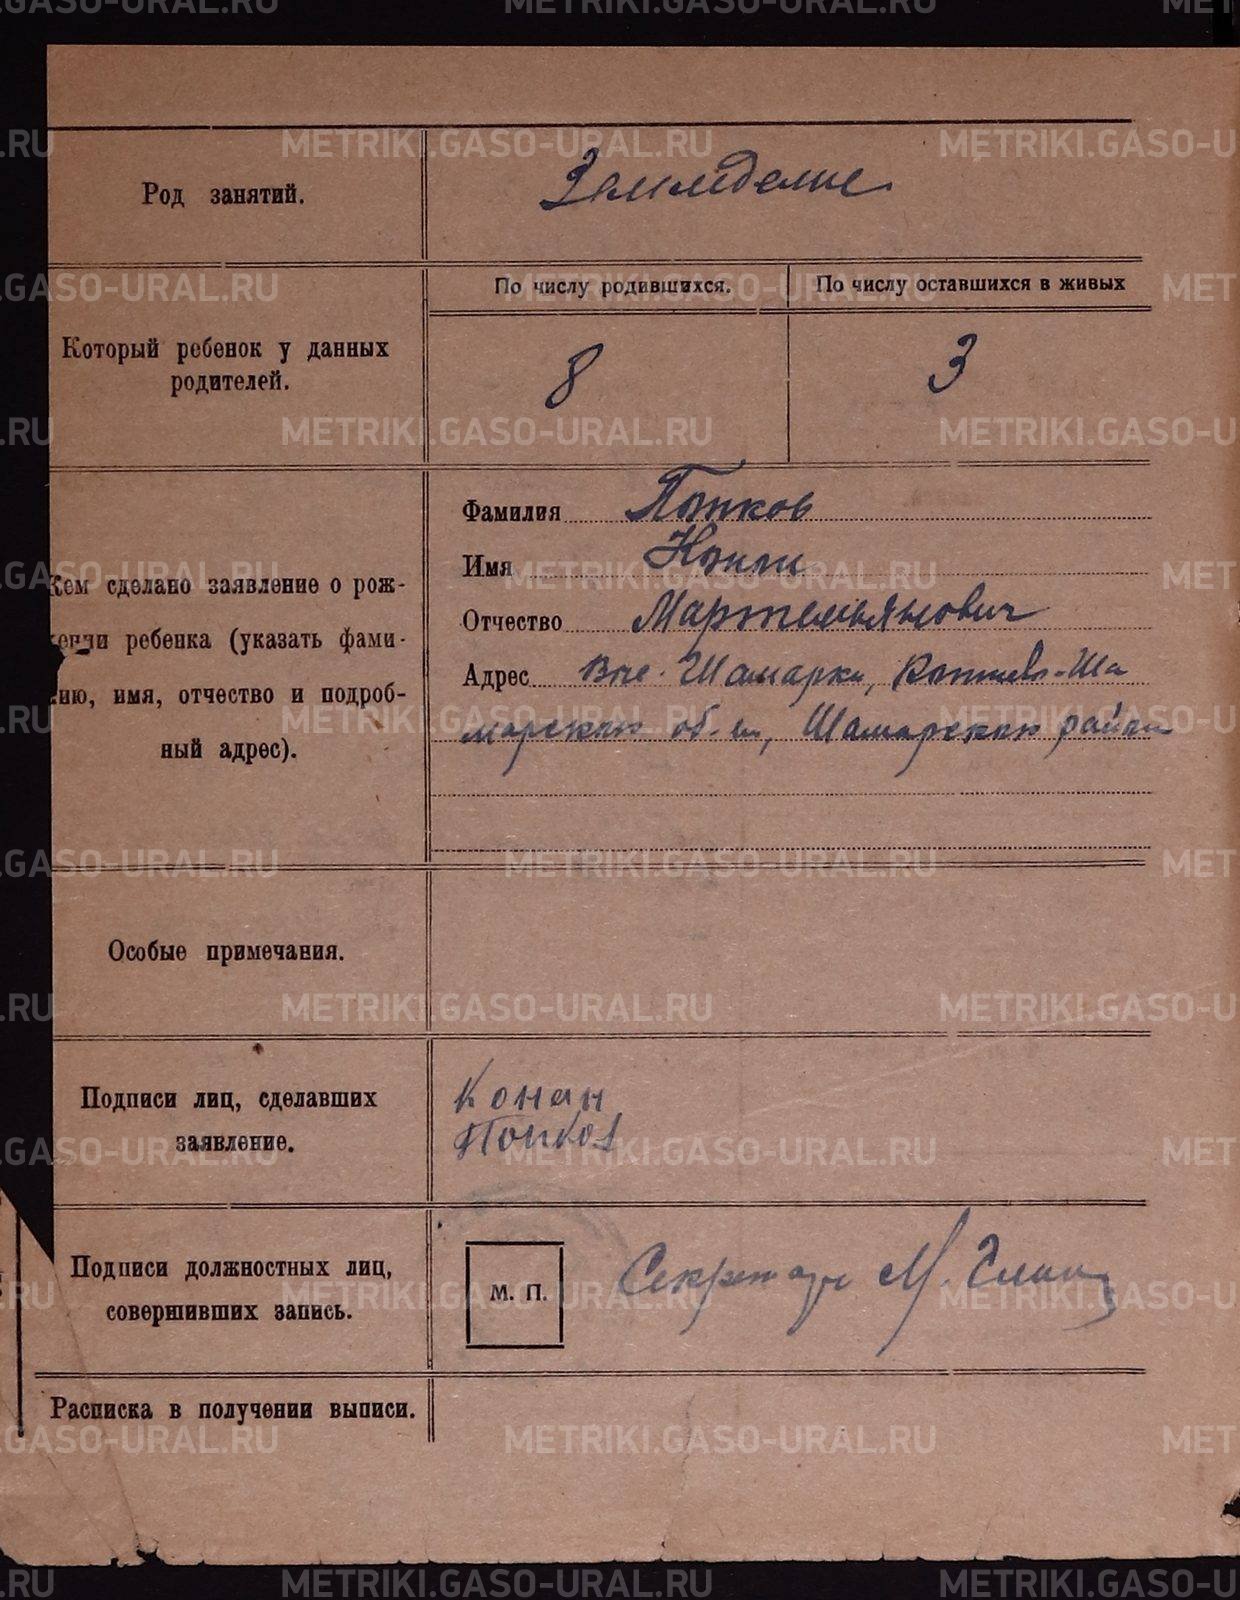 METRIKI.GASO-URAL.RU
Род занятий.
Земледелие.
Который ребенок у данных
родителей.
По числу родившихся.
По числу оставшихся в живых
8
3
Кем сделано заявление о рож-
ребенка (указать фами-
имя, отчество и подроб-
ный адрес).
Фамилия Попков
Имя
Отчество Мартемьянович
Адрес Шамарка, Ша
марского Шамарского района
Особые примечания.
Подписи лиц, сделавших
заявление.
Конан
Попков
Подписи должностных лиц,
совершивших запись.
М. П.
Секретарь М.
Расписка в получении выписи.